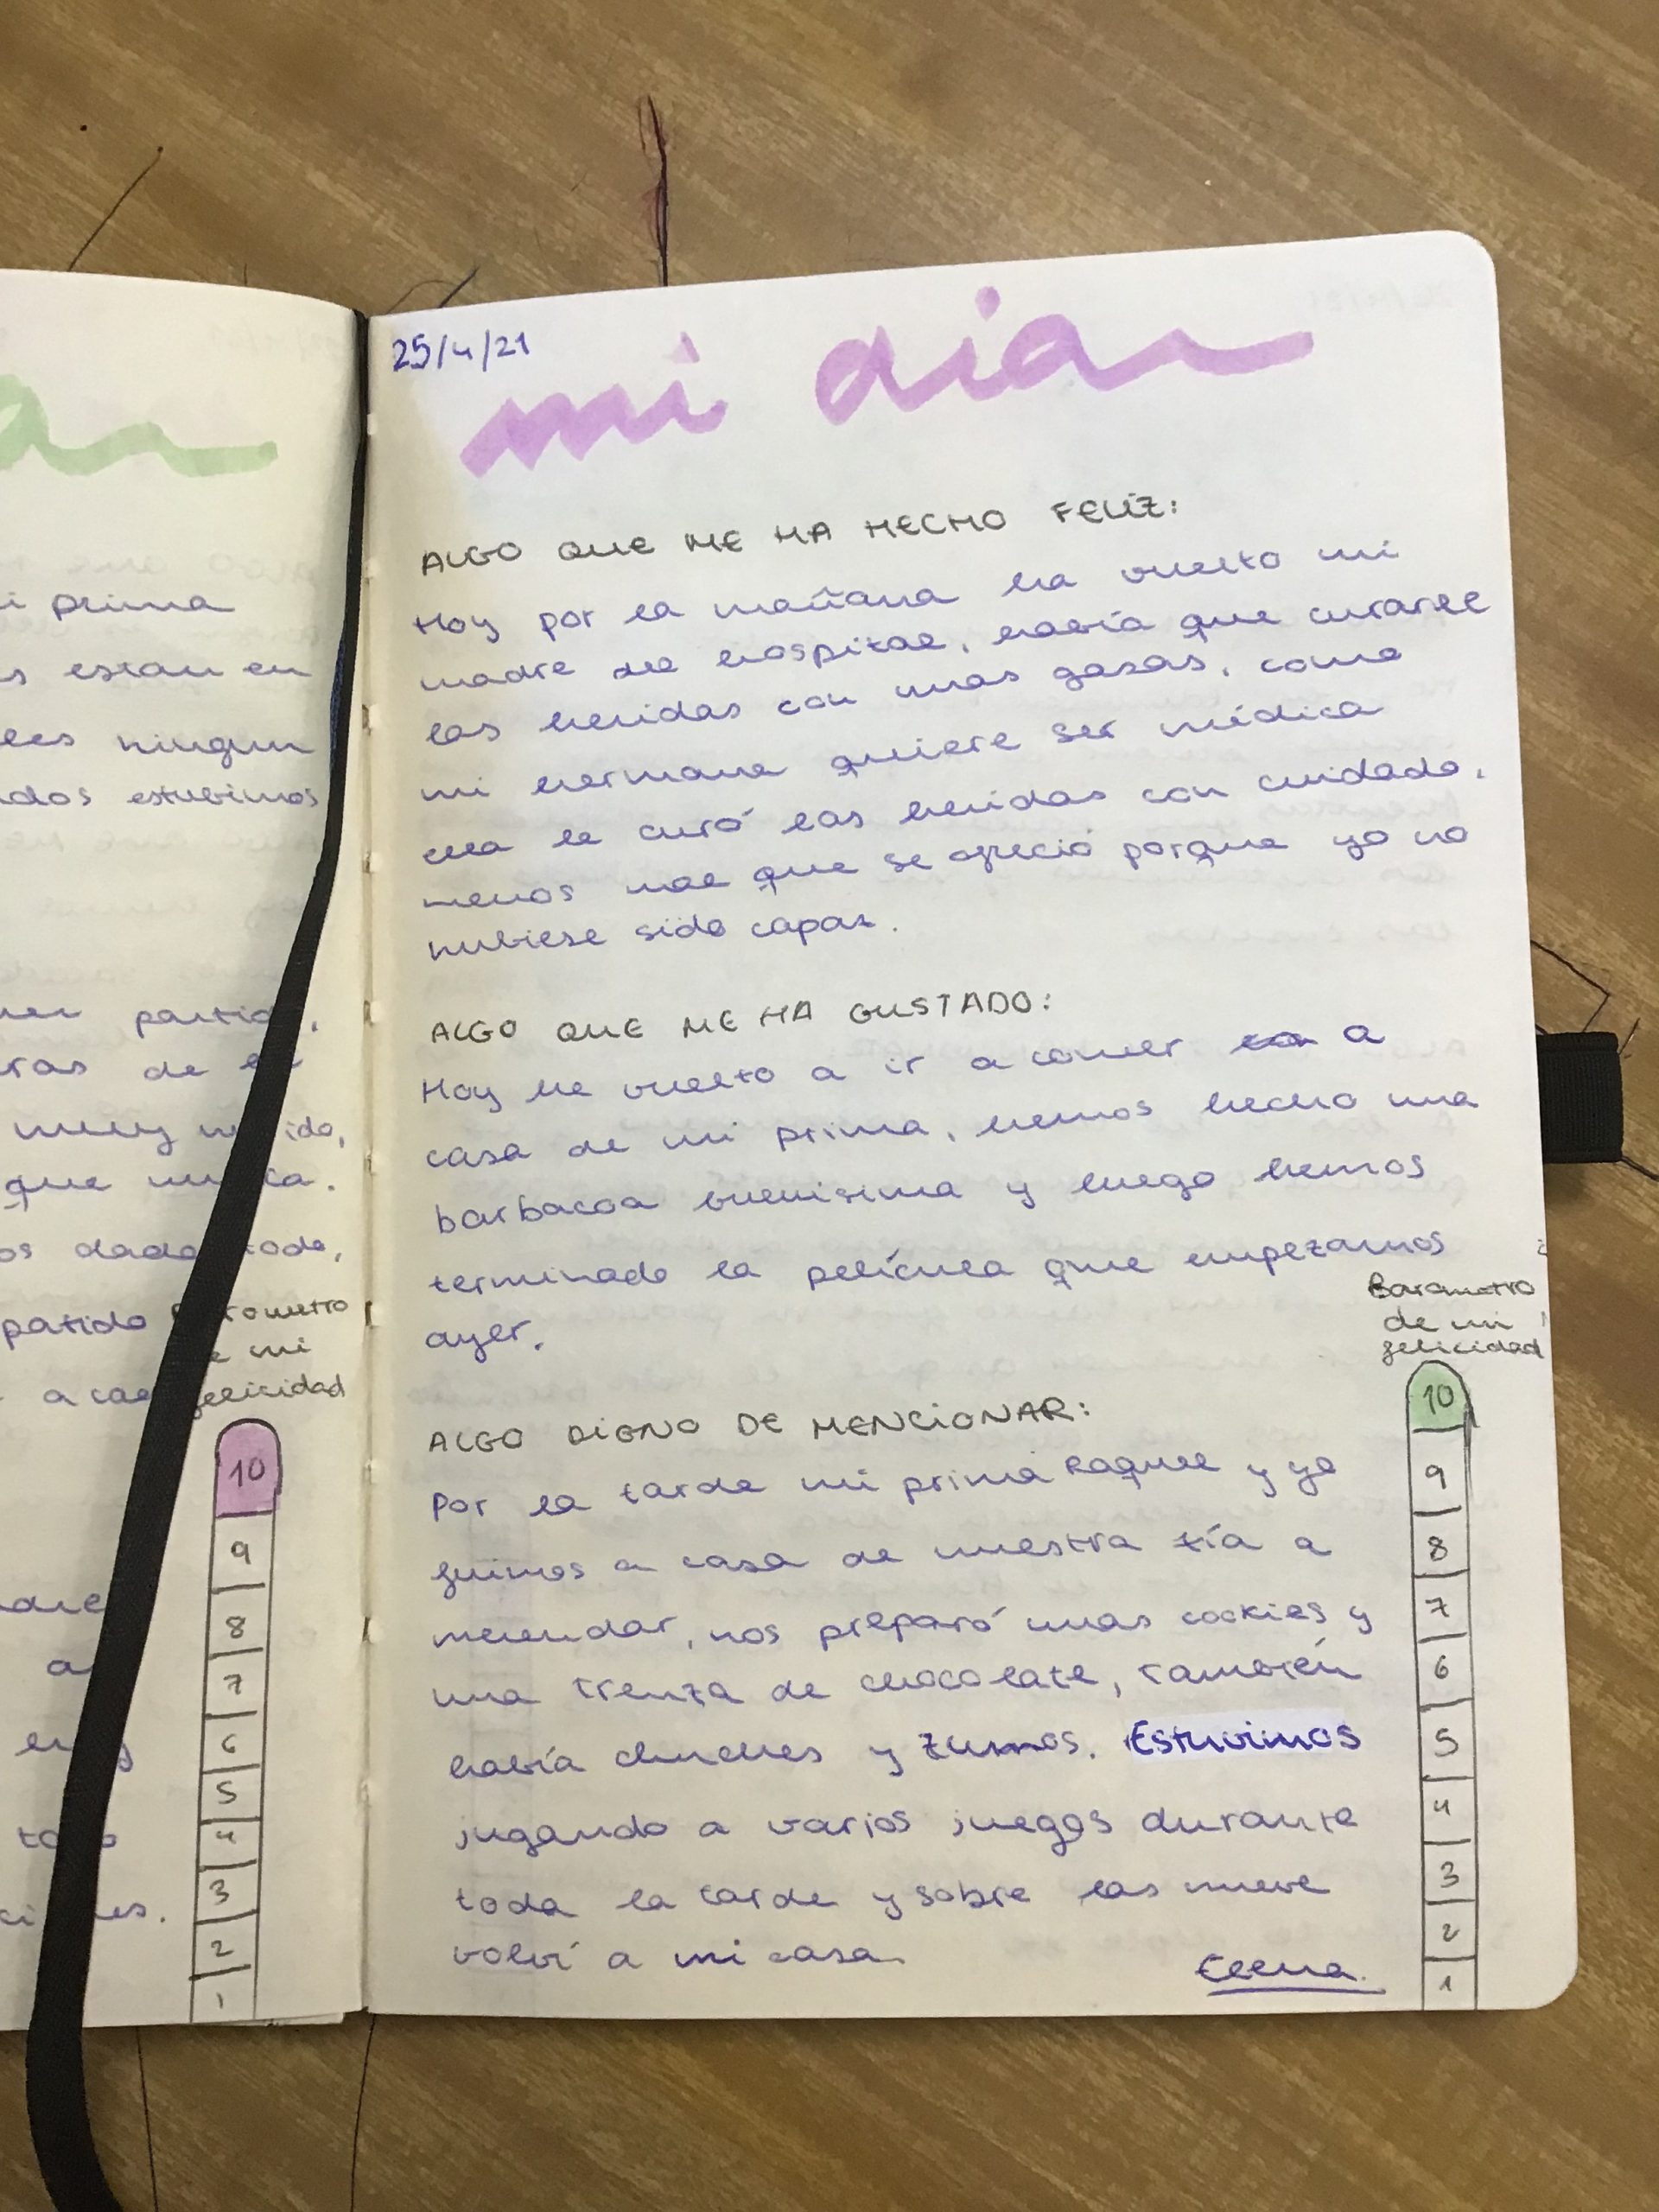 i prima
s estan en
ningun
dos estubimos
partido,
ras de
muy
que
os dado todo,
partido
a
Barometro
de mi
felicidad
10
9
8
7
6
5
4
3
2
1
25/4/21
mi dia
ALGO QUE ME HA HECHO FELIZ:
Hoy por la mañana ha vuelto mi
madre del hospital, había que curarle
las heridas con unas gasas, como
mi hermana quiere ser médica
ella le curó las heridas con cuidado,
menos mal que se ofreció porque yo no
hubiese sido capaz.
ALGO QUE ME HA GUSTADO:
Hoy he vuelto a ir a comer a
casa de mi prima, hemos hecho una
barbacoa buenisima y luego hemos
terminado la película que empezamos
ayer.
ALGO DIGNO DE MENCIONAR:
Por la tarde mi prima Raquel y yo
fuimos a casa de nuestra tía a
merendar, nos preparó unas cookies y
una trenza de chocolate, también
había chuches y zumos. Estuvimos
jugando a varios juegos durante
toda la tarde y sobre las nueve
volví a mi casa.
Elena.
Barometro
de mi
felicidad
10
9
8
7
6
5
4
3
2
1